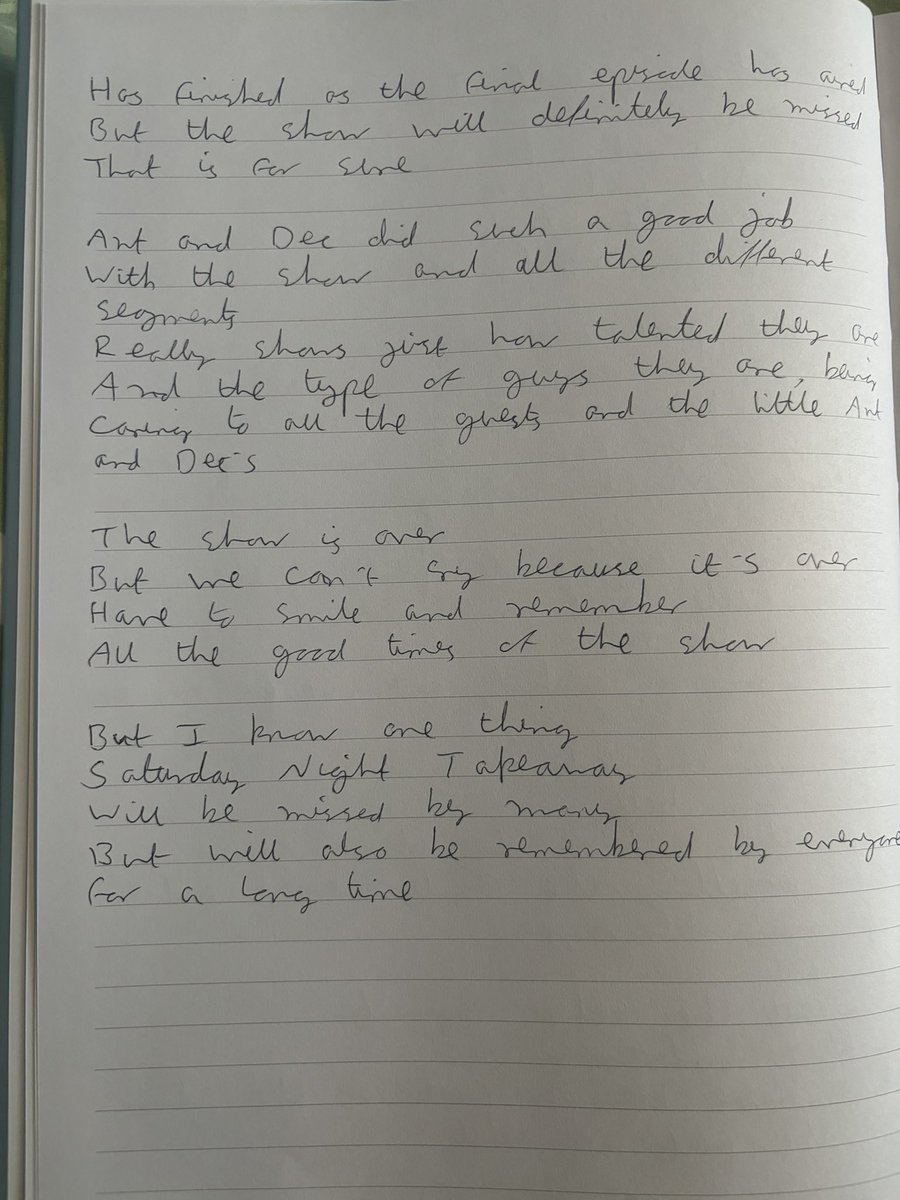 Has finished as the final episode has aired
But the show will definitely be missed
That is for sure
Ant and Dec did such a good job
With the show and all the different
segments
Really shows just how talented they are
And the type of guys they are, being
caring to all the guests and the little Ant
and Dec's
The show is over
But we can't cry because it's over
Have to smile and remember
All the good times of the show
But I know one thing
Saturday Night Takeaway
Will be missed by many
But will also be remembered by everyone
for a long time